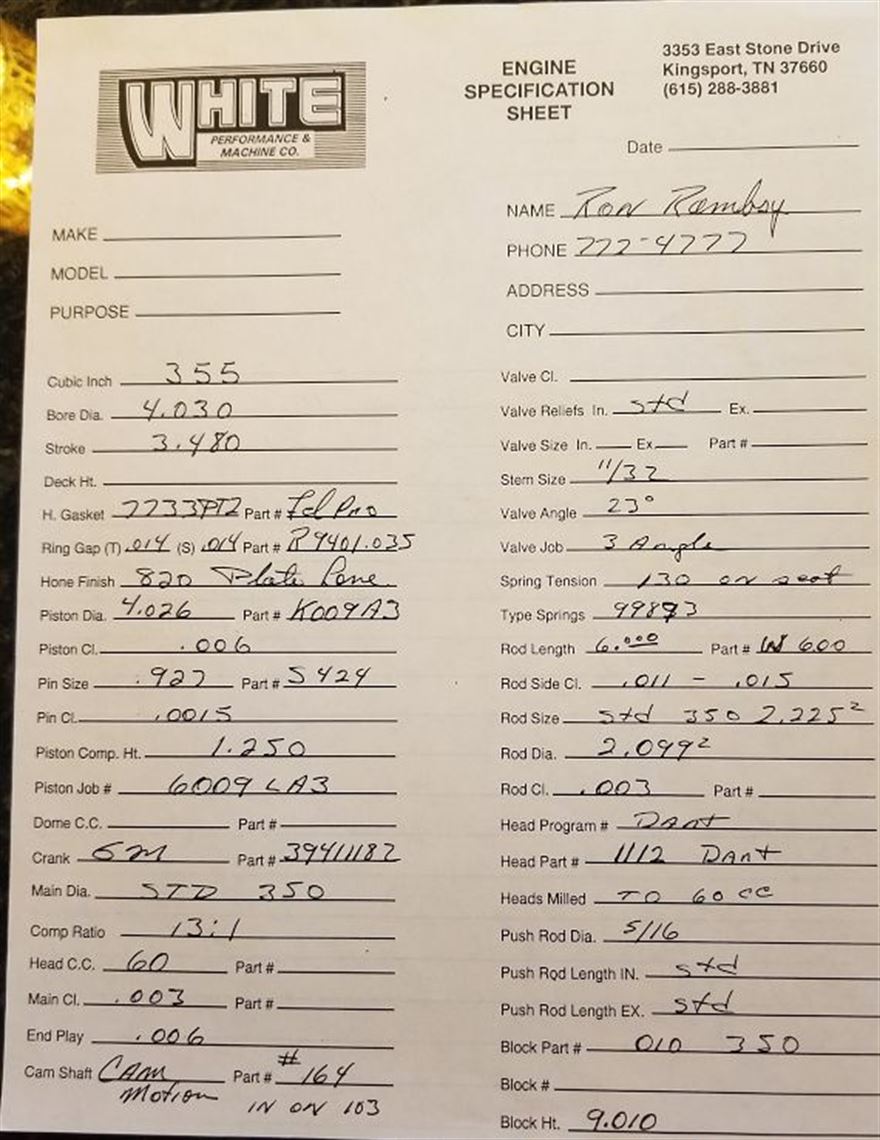 WHITE
PERFORMANCE &
MACHINE CO.
ENGINE
SPECIFICATION
SHEET
3353 East Stone Drive
Kingsport, TN 37660
(615) 288-3881
Date
NAME Ron Ramboy
PHONE 222-4777
ADDRESS
CITY
MAKE
MODEL
PURPOSE
Cubic Inch 355
Bore Dia. 4.030
Stroke 3.480
Deck Ht.
H. Gasket 7733PT2 Part # Fel Pro
Ring Gap (T) .014 (S) .014 Part # R9401.035
Hone Finish 820 Plate
Piston Dia. 4.026 Part # K009A3
Piston Cl. .006
Pin Size .927 Part # S424
Pin Cl. .0015
Piston Comp. Ht. 1.250
Piston Job # 6009 LA3
Dome C.C. Part #
Crank GM Part # 39411182
Main Dia. STD 350
Comp Ratio 13:1
Head C.C. 60 Part #
Main Cl. .003 Part #
End Play .006
Cam Shaft CAM Motion Part # #164
IN ON 103
Valve Cl.
Valve Reliefs In. std Ex.
Valve Size In. Ex Part #
Stem Size 11/32
Valve Angle 23°
Valve Job 3 Angle
Spring Tension 130 on seat
Type Springs 99893
Rod Length 6.000 Part # W 600
Rod Side Cl. .011 - .015
Rod Size std 350 2.225²
Rod Dia. 2.099²
Rod Cl. .003 Part #
Head Program # Dart
Head Part # 1112 Dart
Heads Milled TO 60 cc
Push Rod Dia. 5/16
Push Rod Length IN. std
Push Rod Length EX. std
Block Part # 010 350
Block #
Block Ht. 9.010